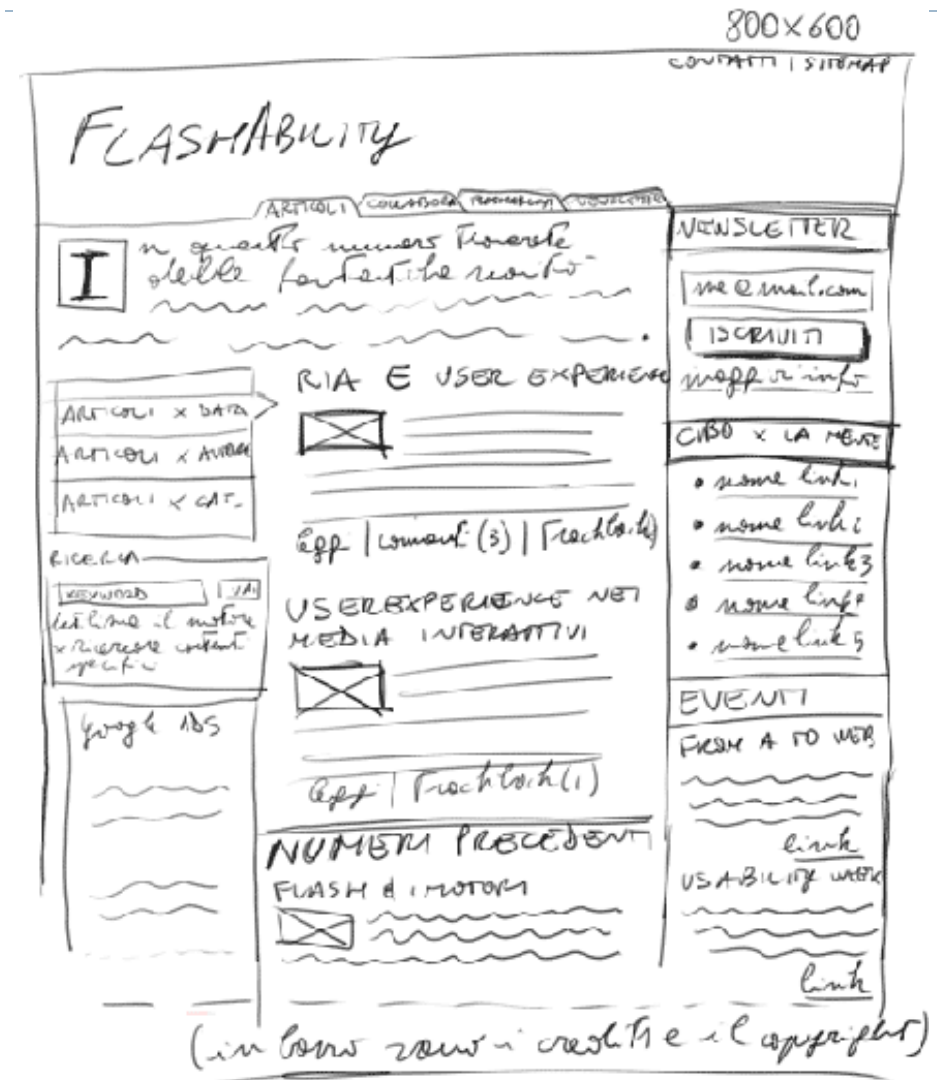 800×600
CONTATTI | SITEMAP
FLASHABILITY
ARTICOLI
COLLABORA
I
n questo numero troverete
delle fantastiche novità
NEWSLETTER
me@mail.com
ISCRIVITI
magg. info
ARTICOLI × DATA
ARTICOLI × AUTORE
ARTICOLI × CAT.
RICERCA
KEYWORD
VAI
utilizza il motore
× ricercare
specifici
google ADS
RIA E USER EXPERIENCE
leggi | comment (3) | Trackback
USER EXPERIENCE NEI
MEDIA INTERATTIVI
leggi | Trackback (1)
NUMERI PRECEDENTI
FLASH & I MOTORI
CIBO × LA MENTE
• nome link 1
• nome link 2
• nome link 3
• nome link
• nome link 5
EVENTI
FROM A TO WEB
link
USABILITY WEEK
link
(in basso sono i credits e il copyright)